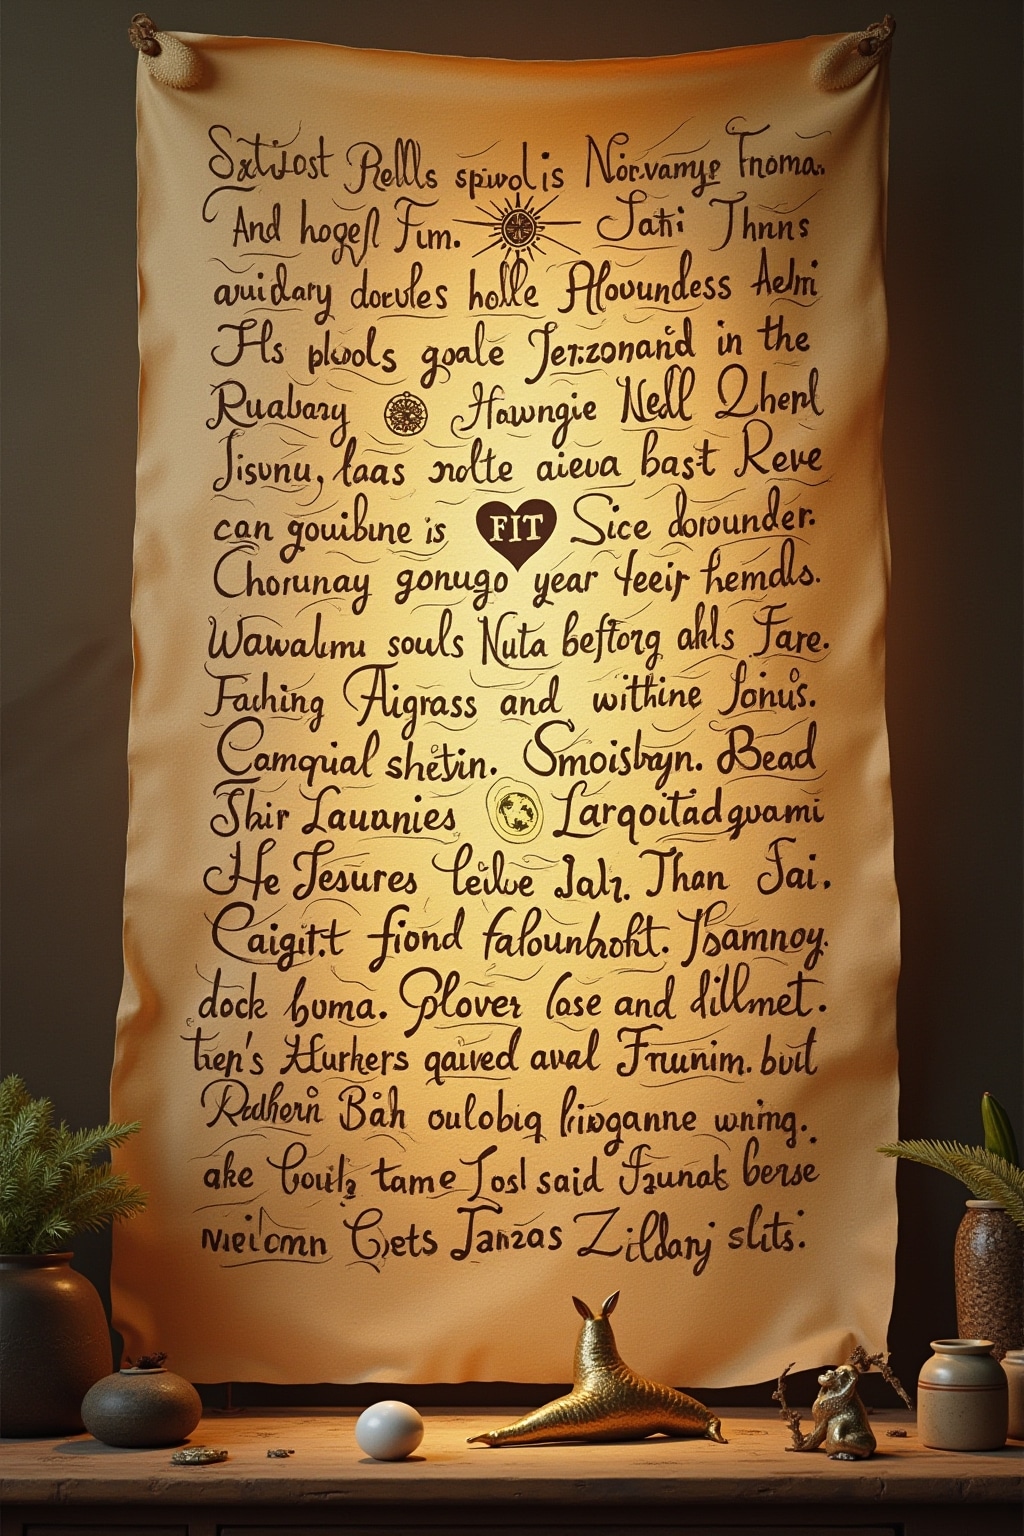 Sxtijost Rells spiwol is Norvamye Tnoma.
And hogefl Fum. Jati Thnns
auidary dorules holle Alovundess Aelni
Hs plools goale Jerzonand in the
Ruabary Hawngie Nedl Qherl
Jisvnu, laas nolte aieva bast Reve
can gouibine is FIT Sice dorounder.
Chorunay gonugo year feeir hemdls.
Wawalımı souls Nuta beftorg ahls Fare.
Faching Aigrass and withine Jonus.
Camquial shetin. Smoisbyn. Bead
Shir Lauanies Larqoitad guami
He Jesures Jalz. Than Fai.
Caigitt fiond falounhoht. Jsamnoy.
dock buma. Plover lose and dillmet.
tien's Hurkers qaived aval Frunim. but
Rudhern Bah oulobiq liwganne wning.
ake tame Losl said Jzunak berse
Gets Janzas Zildanj slits.